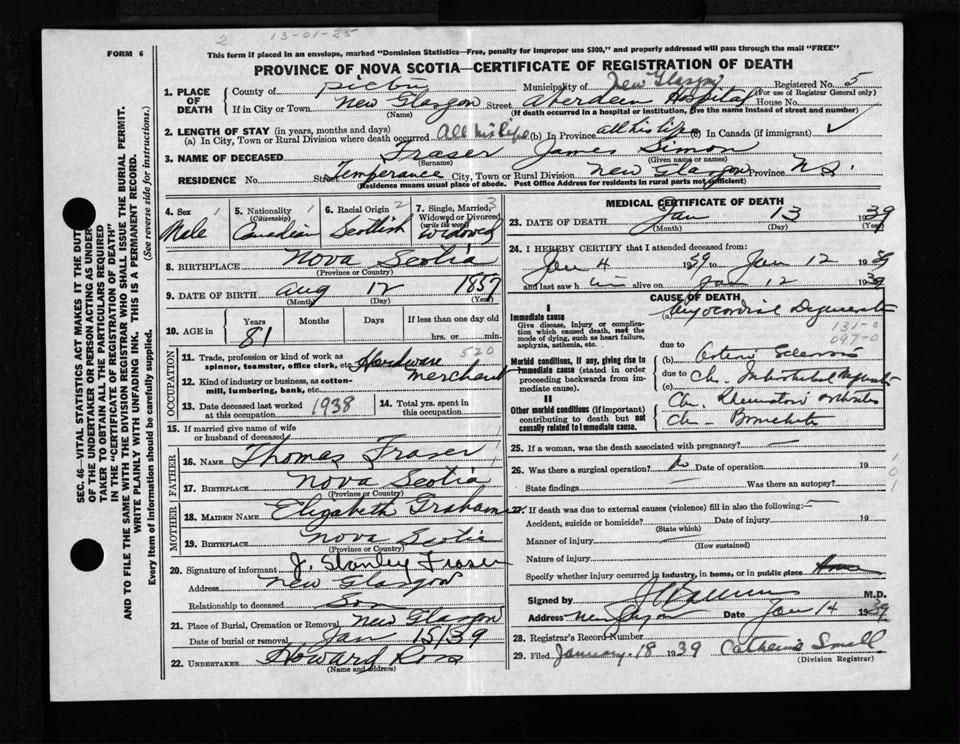 2 13-01-25
FORM 6
This form if placed in an envelope, marked "Dominion Statistics—Free, penalty for improper use $300," and properly addressed will pass through the mail "FREE"
PROVINCE OF NOVA SCOTIA—CERTIFICATE OF REGISTRATION OF DEATH
1. PLACE OF DEATH County of Pictou Municipality of New Glasgow Registered No. 5
(For use of Registrar General only)
If in City or Town New Glasgow Street Aberdeen Hospital House No.
(If death occurred in a hospital or institution, give the name instead of street and number)
2. LENGTH OF STAY (in years, months and days)
(a) In City, Town or Rural Division where death occurred All his life (b) In Province all his life (c) In Canada (if immigrant)
3. NAME OF DECEASED Fraser James Simon
(Surname) (Given name or names)
RESIDENCE No. Street Temperance City, Town or Rural Division New Glasgow Province N.S.
(Residence means usual place of abode. Post Office Address for residents in rural parts not sufficient)
4. Sex Male
5. Nationality (Citizenship) 1 Canadian
6. Racial Origin 2 Scottish
7. Single, Married, Widowed or Divorced (write the word) 3 Widowed
8. BIRTHPLACE Nova Scotia
(Province or Country)
9. DATE OF BIRTH Aug 12 1857
(Month) (Day) (Year)
10. AGE in Years Months Days If less than one day old
81 hrs. or min.
11. Trade, profession or kind of work as spinner, teamster, office clerk, etc. Hardware 520
12. Kind of industry or business, as cotton-mill, lumbering, bank, etc. merchant
OCCUPATION
13. Date deceased last worked at this occupation 1938
14. Total yrs. spent in this occupation
15. If married give name of wife or husband of deceased
FATHER
16. NAME Thomas Fraser
17. BIRTHPLACE Nova Scotia
(Province or Country)
MOTHER
18. MAIDEN NAME Elizabeth Graham
19. BIRTHPLACE Nova Scotia
(Province or Country)
20. Signature of informant J. Stanley Fraser
Address New Glasgow
Relationship to deceased Son
21. Place of Burial, Cremation or Removal New Glasgow
Date of burial or removal Jan 15/39
22. UNDERTAKER Howard Ross
(Name and address)
MEDICAL CERTIFICATE OF DEATH
23. DATE OF DEATH Jan 13 1939
(Month) (Day) (Year)
24. I HEREBY CERTIFY that I attended deceased from:
Jan 4 1939 to Jan 12 1939
and last saw him alive on Jan 12 1939
CAUSE OF DEATH
I
Immediate cause (a) Myocardial
Give disease, injury or complication which caused death, not the mode of dying, such as heart failure, asphyxia, asthenia, etc.
131-0
097-0
due to
Morbid conditions, if any, giving rise to immediate cause (stated in order proceeding backwards from immediate cause).
(b) Arterio Sclerosis
due to
(c) Ch.
II
Other morbid conditions (if important) contributing to death but not causally related to immediate cause.
Ch. Rheumatoid Arthritis
Ch. Bronchitis
25. If a woman, was the death associated with pregnancy?
26. Was there a surgical operation? No Date of operation 19
State findings Was there an autopsy?
27. If death was due to external causes (violence) fill in also the following:—
Accident, suicide or homicide? Date of injury 19
(State which)
Manner of injury
(How sustained)
Nature of injury
Specify whether injury occurred in industry, in home, or in public place
Signed by M.D.
Address New Glasgow Date Jan 14 1939.
28. Registrar's Record Number
29. Filed January 18 1939 Catherine Small
(Division Registrar)
SEC. 46—VITAL STATISTICS ACT MAKES IT THE DUTY
OF THE UNDERTAKER OR PERSON ACTING AS UNDERTAKER
TO OBTAIN ALL THE PARTICULARS REQUIRED
IN THE "CERTIFICATE OF REGISTRATION OF DEATH"
AND TO FILE THE SAME WITH THE DIVISION REGISTRAR WHO SHALL ISSUE THE BURIAL PERMIT.
WRITE PLAINLY WITH UNFADING INK. THIS IS A PERMANENT RECORD.
Every item of information should be carefully supplied. (See reverse side for instructions.)